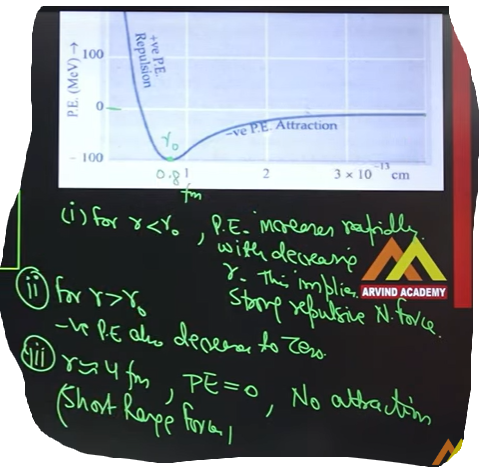 P.E. (MeV) →
100
0
– 100
+ve P.E.
Repulsion
–ve P.E. Attraction
r₀
0.8 fm
1
2
3 × 10⁻¹³ cm
(i) for r < r₀, P.E. increases rapidly
with decreasing
r. This implies
strong repulsive N. force.
ARVIND ACADEMY
(ii) for r > r₀
-ve P.E also decreases to zero.
(iii) r ≈ 4 fm, PE = 0, No attraction
(Short Range Force)